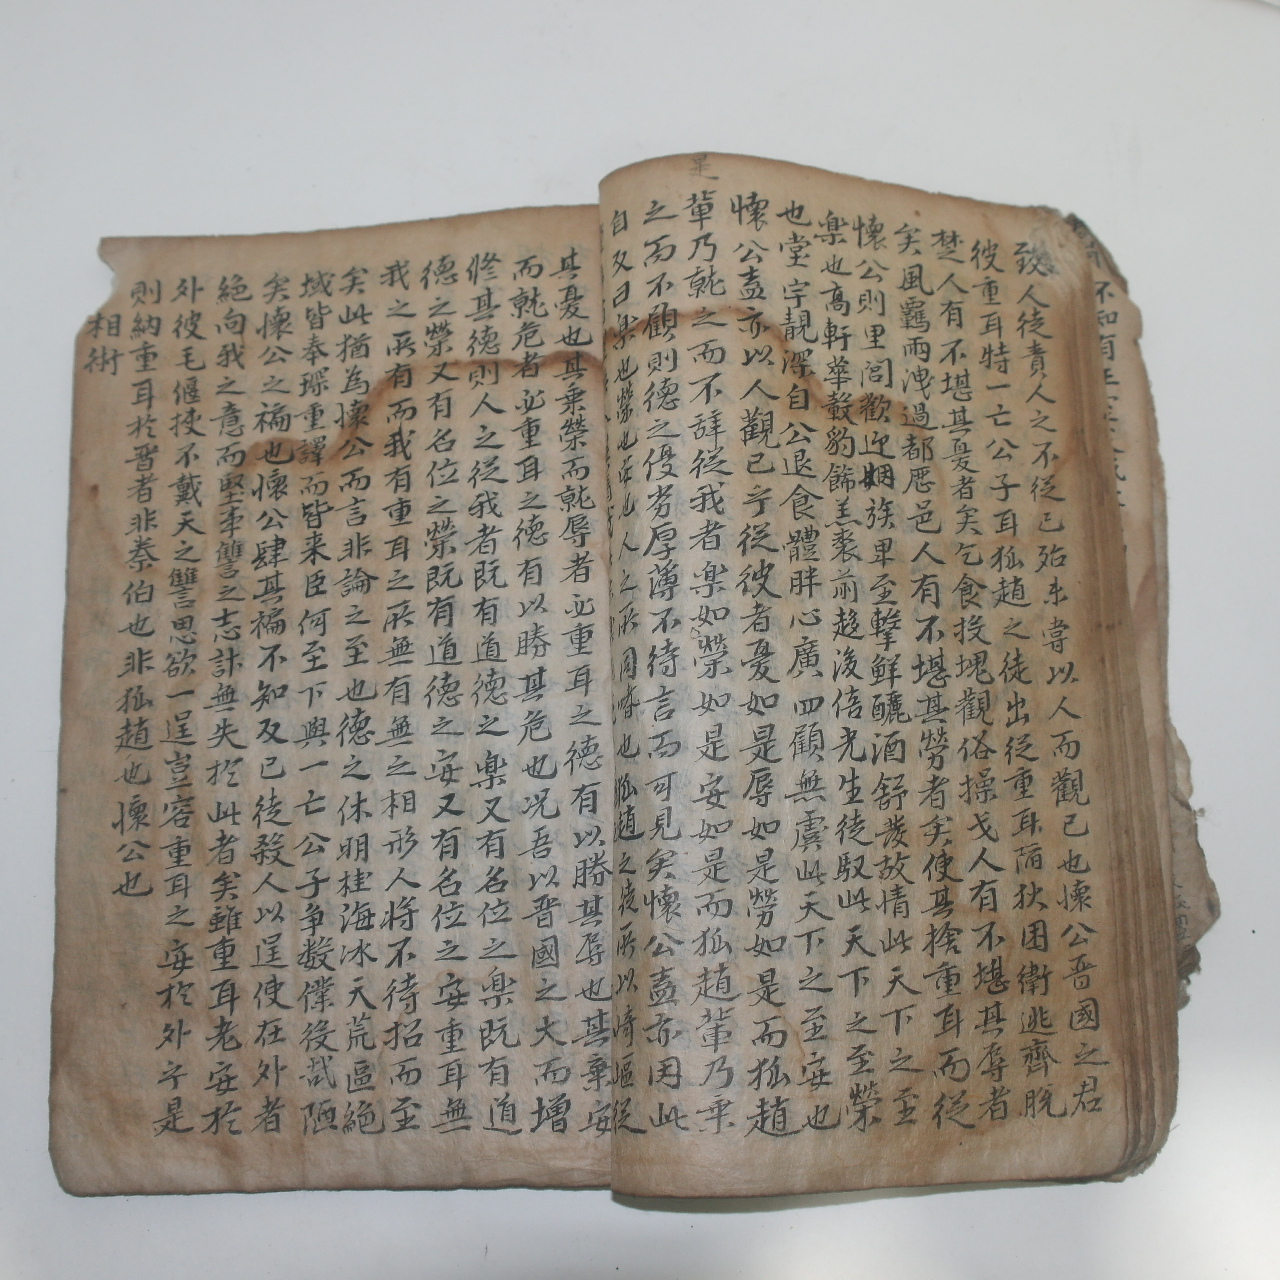 不知有
致人徒責人之不從己殆未嘗以人而觀己也懷公晋國之君
彼重耳特一亡公子耳狐趙之徒出從重耳陋狄困衛逃齊脫
楚人有不堪其憂者矣乞食投塊觀俗操戈人有不堪其辱者
矣風霾雨洩過都歷邑人有不堪其勞者矣使其捨重耳而從
懷公則里閭歡迎姻族畢至擊鮮釃酒舒發故情此天下之至
楽也高軒華轂豹飾羔裘前趍後倍光生徒馭此天下之至榮
也堂宇靚深自公退食體胖心廣四顧無虞此天下之至安也
懷公盍亦以人觀己乎從彼者憂如是辱如是勞如是而狐趙
是
輩乃就之而不辞從我者楽如榮如是安如是而狐趙輩乃棄
之而不顧則德之優劣厚薄不待言而可見矣懷公盍亦因此
自反曰楽也榮也安也人之所同嗜也狐趙之徒所以崎嶇從
其憂也其棄榮而就辱者必重耳之德有以勝其辱也其棄安
而就危者必重耳之德有以勝其危也况吾以晋國之大而增
修其德則人之從我者既有道德之楽又有名位之楽既有道
德之榮又有名位之榮既有道德之安又有名位之安重耳無
我之所有而我有重耳之所無有無之相形人将不待招而至
矣此猶為懷公而言非論之至也德之休明桂海冰天荒區絶
域皆奉琛重譯而皆来臣何至下與一亡公子争数僕役哉陋
矣懷公之褊也懷公肆其褊不知反己徒殺人以逞使在外者
絶向我之意而堅事讐之志計無失於此者矣雖重耳老安於
外彼毛偃挟不戴天之讐思欲一逞豈容重耳之安於外乎是
則納重耳於晋者非秦伯也非狐趙也懷公也
相術